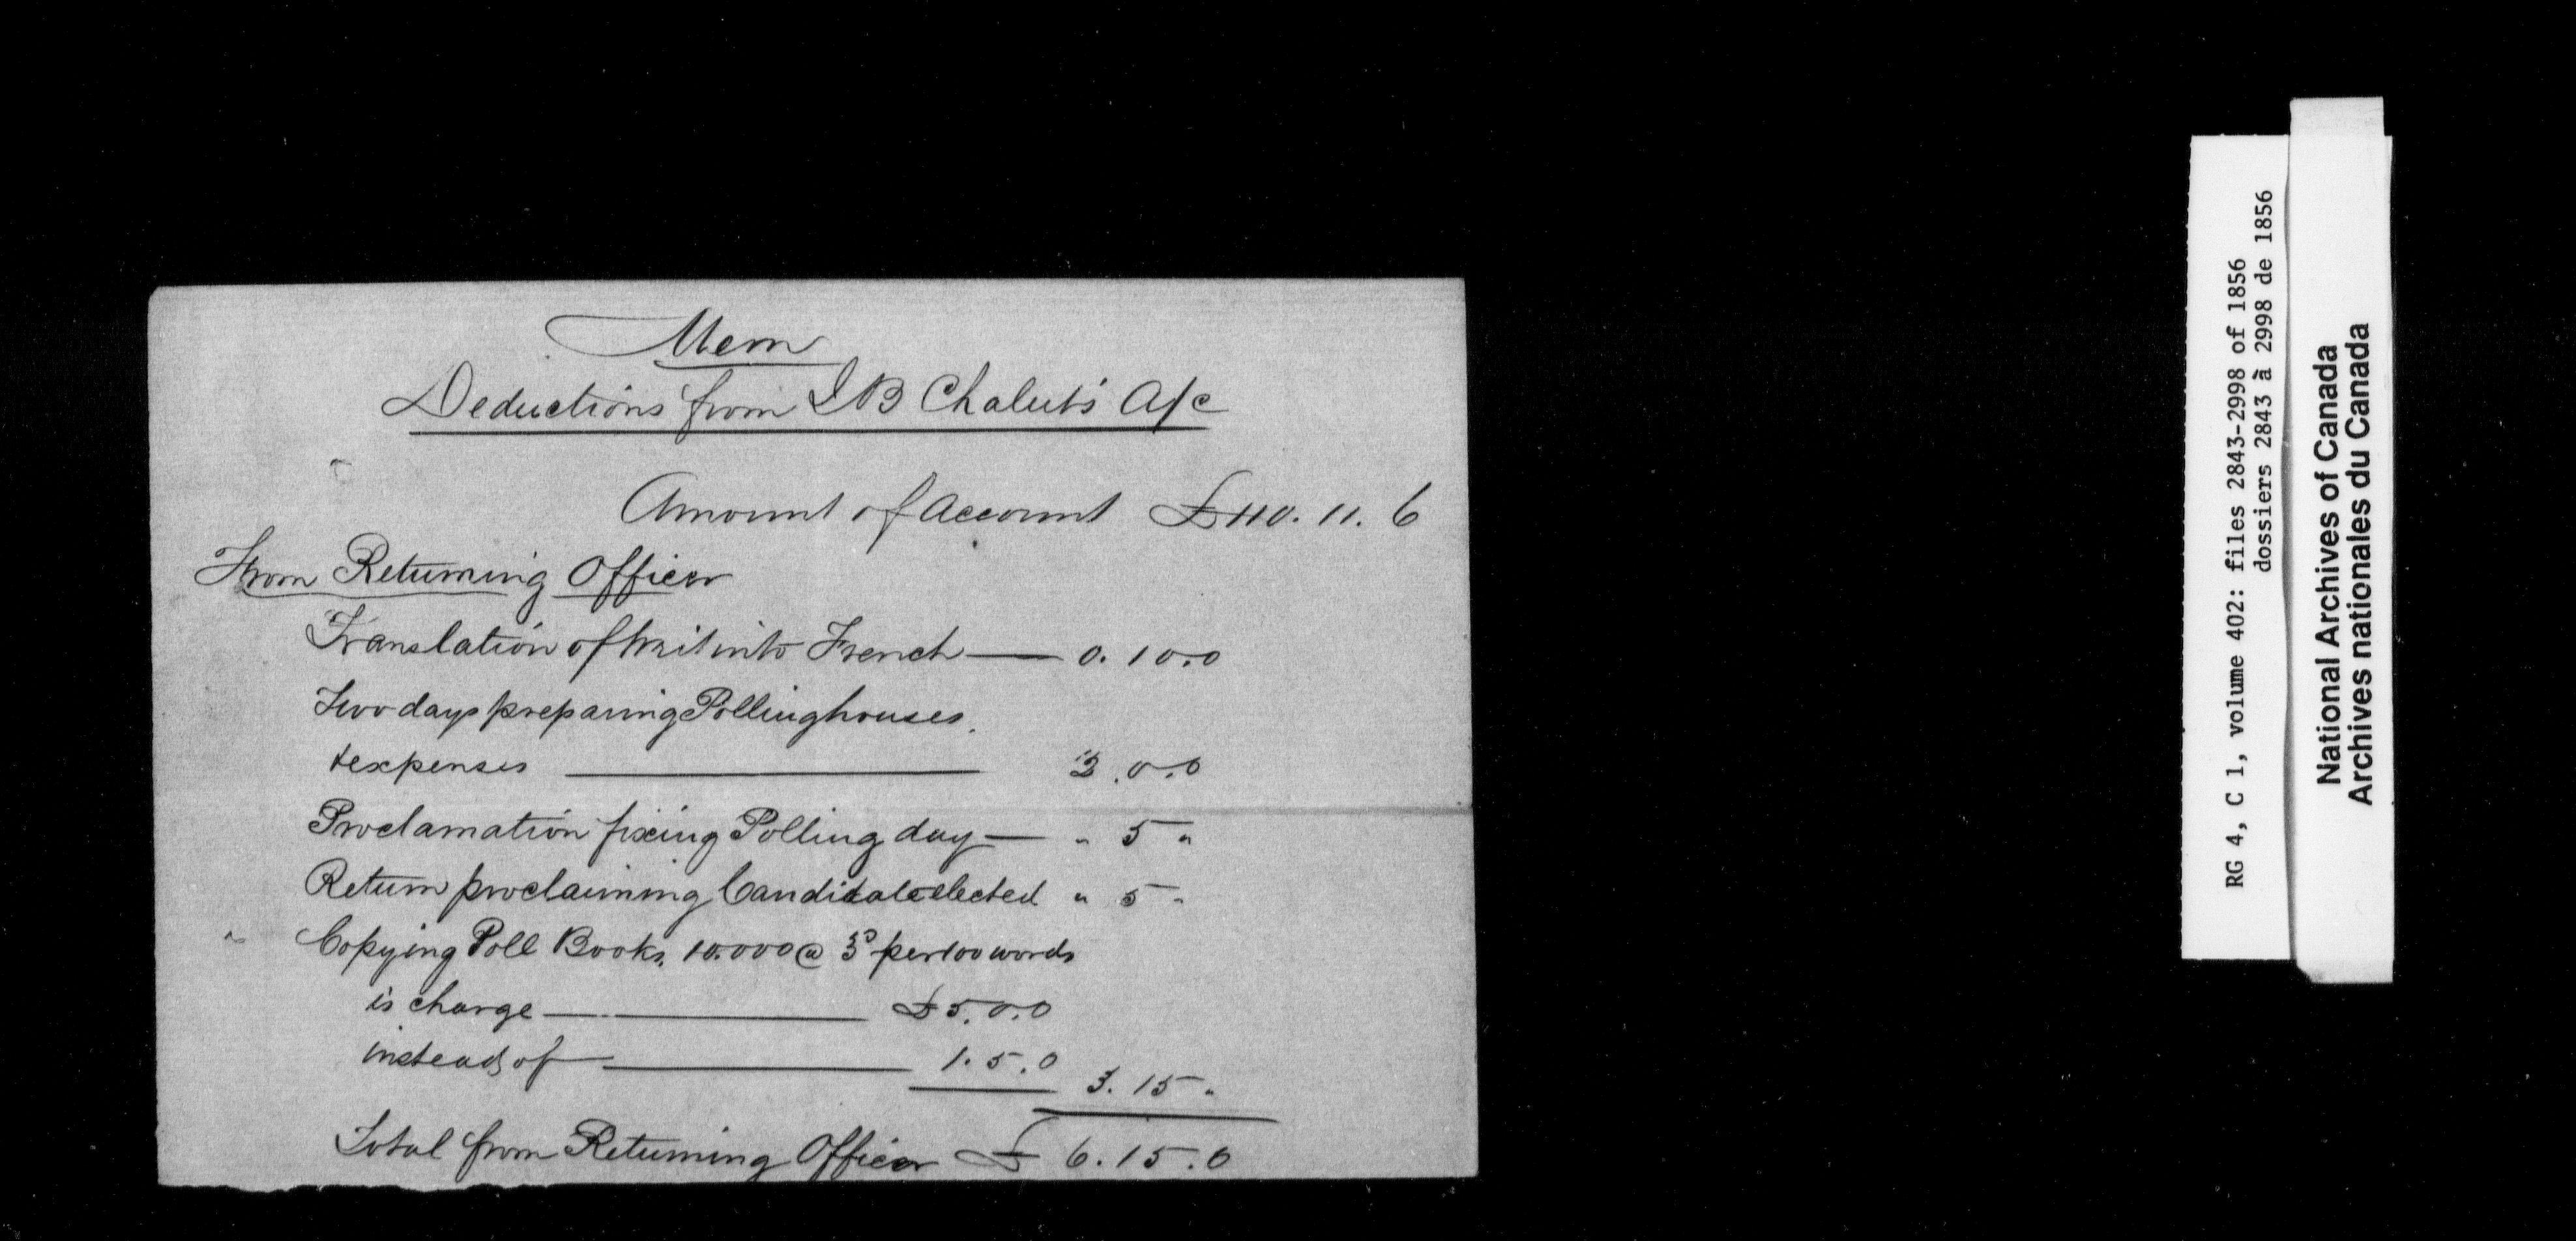 Mem
Deductions from J B Chalut's A/c
Amount of Account £110. 11. 6
From Returning Officer
Translation of Writ into French — 0. 10. 0
Two days preparing Polling houses.
& expenses — 2. 0. 0
Proclamation fixing Polling day — " 5 "
Return proclaiming Candidate elected " 5 "
Copying Poll Books, 10.000 @ 3D per 100 words
is charge — £5. 0. 0
instead of — 1. 5. 0
3. 15 "
Total from Returning Officer £ 6. 15. 0
RG 4, C 1, volume 402: files 2843-2998 of 1856
dossiers 2843 à 2998 de 1856
National Archives of Canada
Archives nationales du Canada